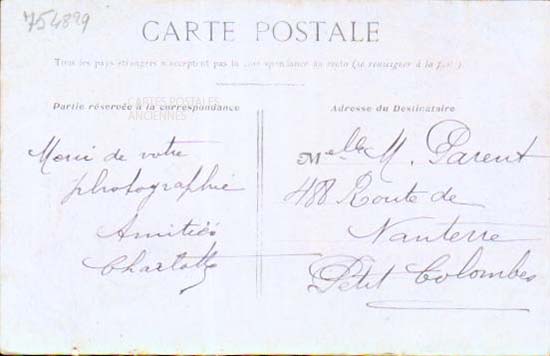 754829
CARTE POSTALE
Tous les pays étrangers n'acceptent pas la correspondance au recto (se renseigner à la poste)
Partie réservée à la correspondance
Adresse du Destinataire
CARTES POSTALES
ANCIENNES
Merci de votre
photographie
Amitiés
Charlotte
Melle M. Parent
488 Route de
Nanterre
Petit Colombes